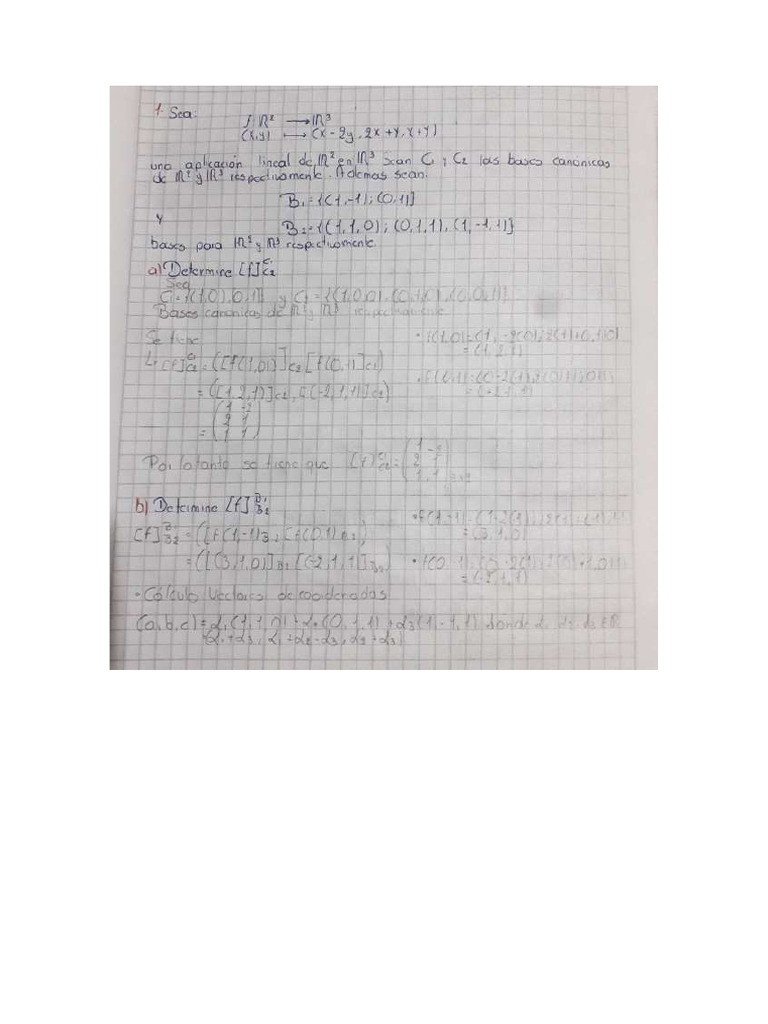 1. Sea:
f: ℝ² ⟶ ℝ³
(x,y) ⟼ (x-2y, 2x+y, x+y)
una aplicación lineal de ℝ² en ℝ³ sean C₁ y C₂ las bases canónicas
de ℝ² y ℝ³ respectivamente. Además sean:
B₁={(1,-1);(0,1)}
y
B₂={(1,1,0);(0,1,1),(1,-1,1)}
bases para ℝ² y ℝ³ respectivamente
a) Determine [f]C₁C₂
Sea
C₁={(1,0),(0,1)} y C₂={(1,0,0),(0,1,0),(0,0,1)}
Bases canónicas de ℝ² y ℝ³ respectivamente
Se tiene
• f(1,0)=(1-2(0),2(1)+0,1+0)
=(1,2,1)
[f]C₁C₂=([f(1,0)]C₂ [f(0,1)]C₂)
• f(0,1)=(0-2(1),2(0)+1,0+1)
=(-2,1,1)
=([1,2,1)]C₂,[(-2,1,1)]C₂)
=(1 -2
2 1
1 1)
Por lo tanto se tiene que [f]C₁C₂=(1 -2
2 1
1 1)
b) Determine [f]B₁B₂
[f]B₁B₂=([f(1,-1)]B₂ [f(0,1)]B₂)
=(3,1,0)
=([(3,1,0)]B₂ [(-2,1,1)]B₂)
• f(0,1)=(0-2(1),2(0)+1,0+1)
=(-2,1,1)
• Cálculo Vectores de coordenadas
(a,b,c)=α₁(1,1,0)+α₂(0,1,1)+α₃(1,-1,1) donde α₁ α₂ α₃ ∈ ℝ
(α₁+α₃, α₁+α₂-α₃, α₂+α₃)